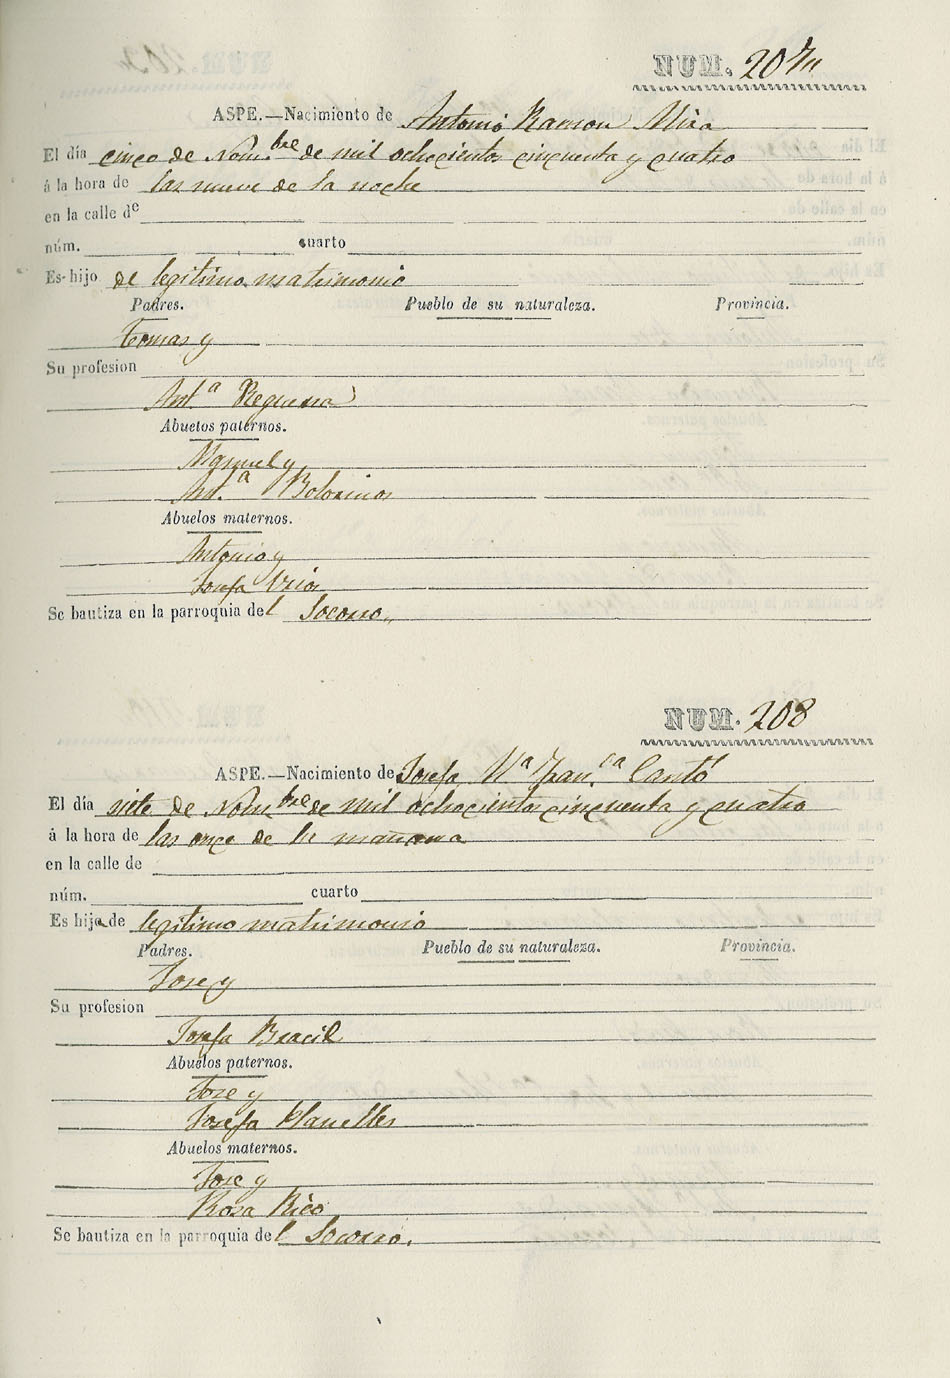 NUM. 207"
ASPE.—Nacimiento de Antonio Ramon Mira
El día cinco de Nom.bre de mil ochocientos cincuenta y cuatro
á la hora de las nueve de la noche
en la calle de
núm. cuarto
Es hijo de legitimo matrimonio
Padres. Pueblo de su naturaleza. Provincia.
Tomas y
Su profesion
Ant.a Requena
Abuelos paternos.
Manuel y
Ant.a Botosinos
Abuelos maternos.
Antonio y
Josefa Urios
Se bautiza en la parroquia del Socorro.
NUM. 208
ASPE.—Nacimiento de Josefa Ma Fran.ca Cantó
El día siete de Nom.bre de mil ochocientos cincuenta y cuatro
á la hora de las once de la mañana
en la calle de
núm. cuarto
Es hija de legitimo matrimonio
Padres. Pueblo de su naturaleza. Provincia.
Jose y
Su profesion
Josefa Bracil
Abuelos paternos.
Jose y
Josefa Planelles
Abuelos maternos.
Jose y
Rosa Rico
Se bautiza en la parroquia del Socorro.